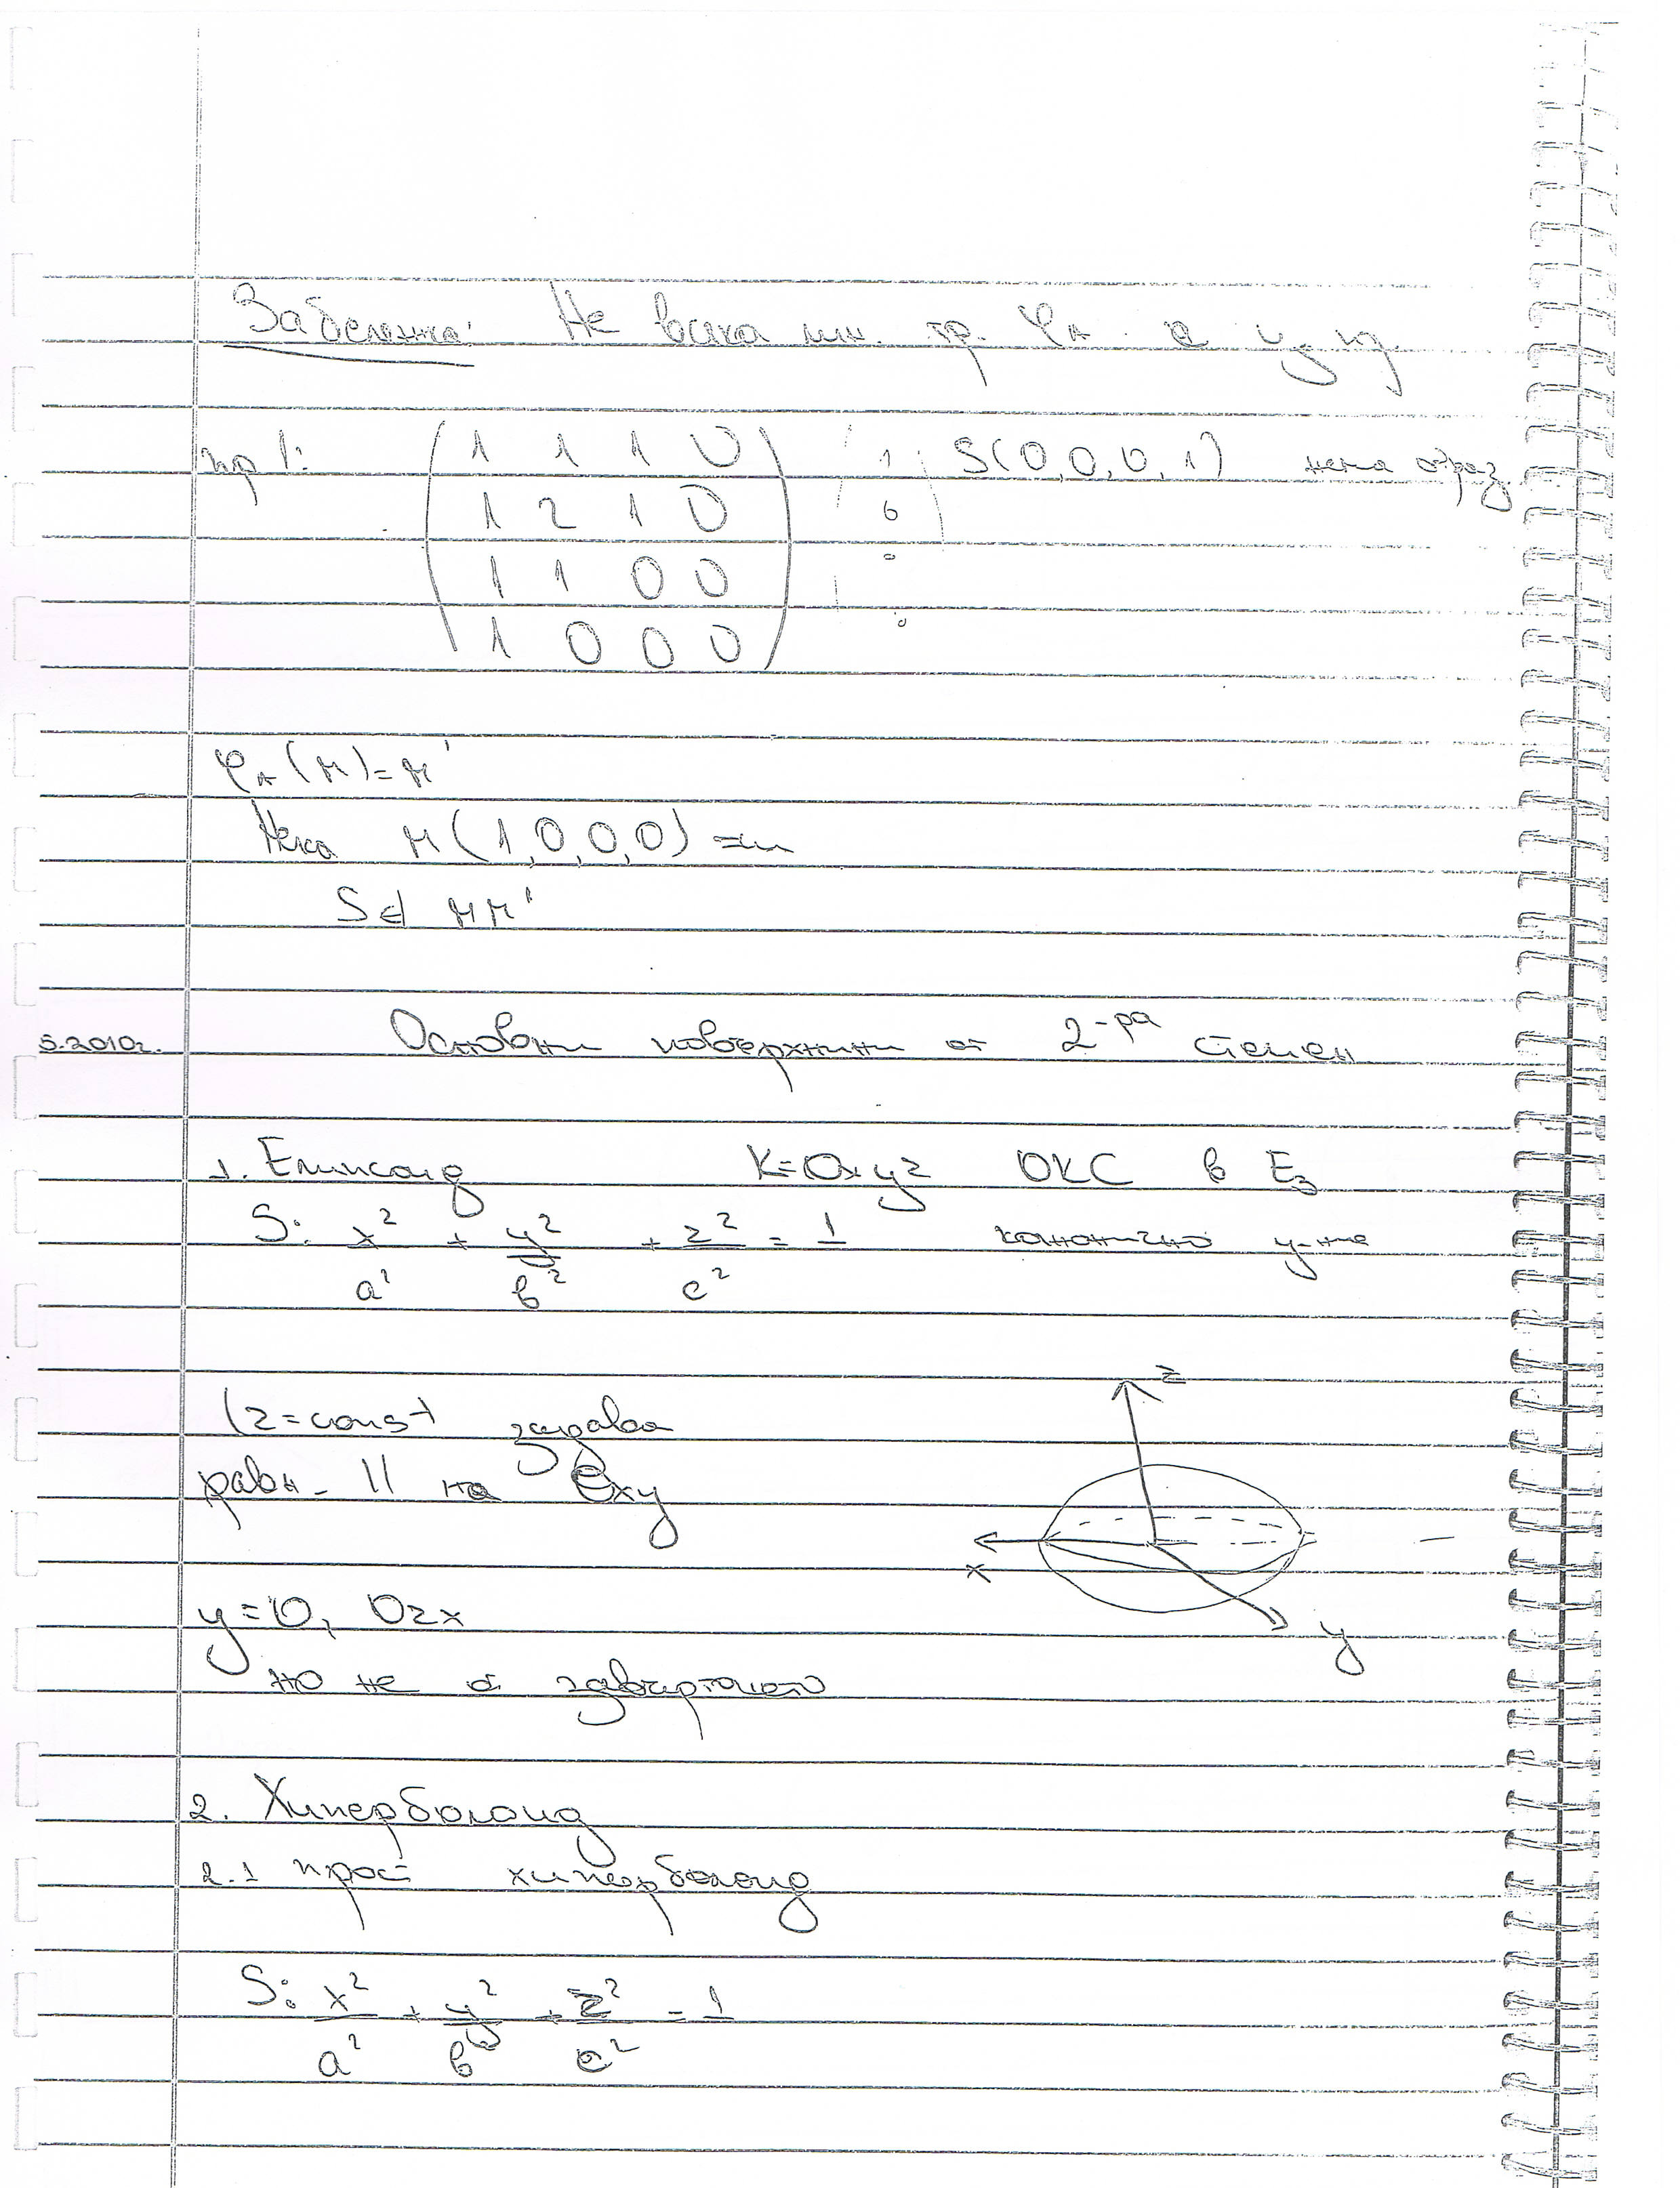 Забележка: Не всяка лин. тр. φA е
пр 1: (1 1 1 0) (1) S(0,0,0,1) няма образ
(1 2 1 0) 0
(1 1 0 0) 0
(1 0 0 0) 0
φA(M)=M'
Нека M(1,0,0,0) =>
S∉ MM'
5.2010г. Основни повърхнини от 2-ра степен
1. Елипсоид K=Oxyz ОКС в E3
S: x²/a² + y²/b² + z²/c² = 1 канонично у-ние
(z=const задава
z
равн. || на Oxy
x
y=0, Ozx
y
но не е завъртяното
2. Хиперболоид
2.1 прост хиперболоид
S: x²/a² + y²/b² + z²/c² = 1